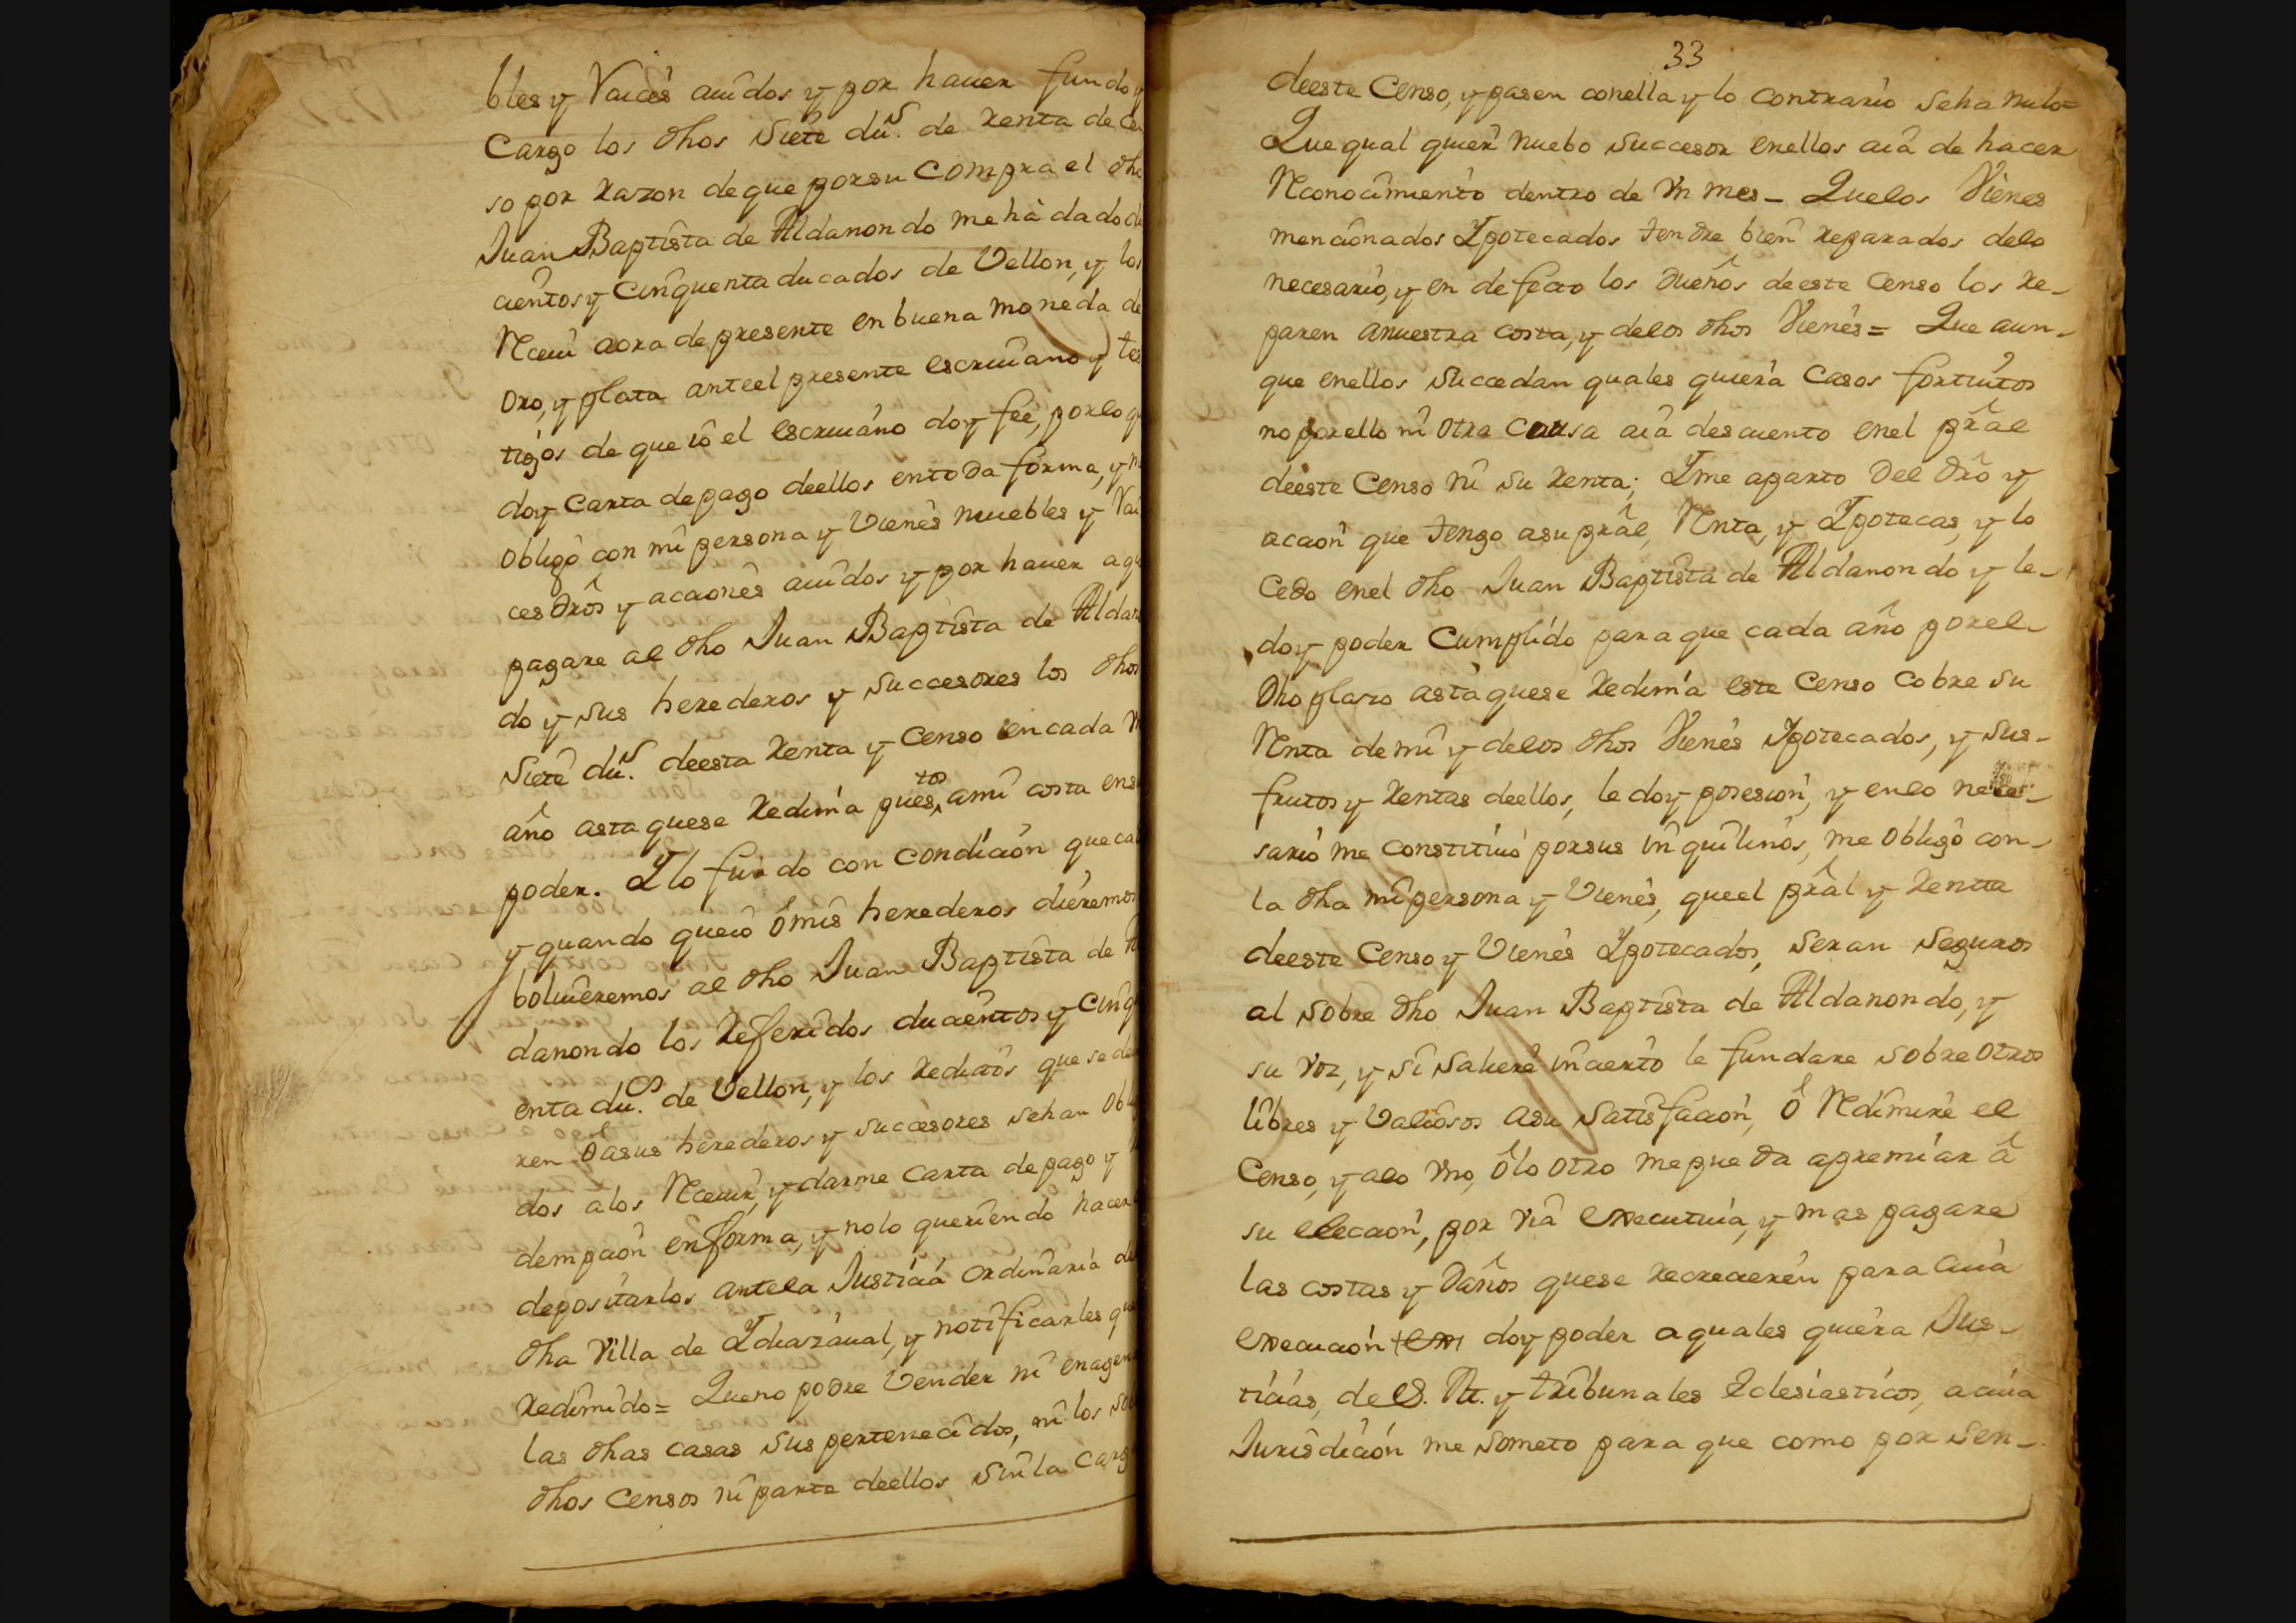 bles y Raices auidos y por hauer fundo y
Cargo los dhos Siete du.s de renta de Cen
so por razon de que por su Compra el dho
Juan Baptista de Aldanondo me hà dado du
cientos y Cinquenta ducados de Vellon, y los
Rceui aora de presente en buena moneda de
Oro, y plata ante el presente escriuano y tes
tigos de que iô el escriuano doy feê, por lo q
doy Carta de pago deellos en toda forma, y m
obligo con mi persona y Vienes muebles y Rai
ces drôs y acciones auidos y por hauer a q
pagare al dho Juan Baptista de Aldan
do y sus herederos y Succesores los dhos
Siete du.s deesta Renta y Censo en cada Vn
año asta quese redima puestos amî costa en su
poder. Y lo fundo con condicion que ca
y quando que iô ô mis herederos dieremos
boluieremos al dho Juan Baptista de Al
danondo los Referidos ducientos y Cinq
enta du.s de Vellon, y los reditos que se de
ren ô asus herederos y succesores sehan obliga
dos a los Rceuir, y darme Carta de pago y
dempcion en forma, y no lo queriendo hacer
depositarlos ante la Justicia ordinaria de
dha Villa de Ydiazaual, y notificarles que
redimido= Que no podre Vender ni enagen
las dhas casas Sus pertenecidos, ni los Sob
dhos Censos ni parte deellos Sin la Carga
33
deeste Censo, y pasen con ella y lo contrario Seha nulo=
Que qual quier nuebo Succesor en ellos aia de hacer
Rconocimiento dentro de Vn mes_ Que los Vienes
mencionados Ypotecados tendre bien reparados de lo
necesario, y en defecto los dueños deeste Censo los re_
paren anuestra costa, y delos dhos Vienes= Que aun_
que enellos Succedan quales quiera Casos fortuitos
no por ello ni otra Causa aia descuento enel prâl
deeste Censo ni su renta; Y me aparto del drô y
accion que tengo asu prâl, Rnta, y Ypotecas, y lo
Cedo enel dho Juan Baptista de Aldanondo y le_
doy poder Cumplido para que cada año por el_
dho plazo asta quese redima este Censo Cobre su
Rnta de mi y de los dhos Vienes Ypotecados, y sus_
frutos y rentas deellos, le doy posesion, y en lo nece_
sario me constituio por sus inquilinos, me obligo con_
la dha mi persona y Vienes, que el prâl y renta
deeste Censo y Vienes Ypotecados, Seran Seguros
al Sobre dho Juan Baptista de Aldanondo, y
su Voz, y si Saliere incierto le fundare sobre otros
libres y Valiosos asu Satisfacion, ô Rdimire el
Censo, y a lo Vno, ô lo otro me pueda apremiar â
su eleccion, por via executiua, y mas pagare
las costas y Daños quese recrecieren para cuia
execucion doy poder a quales quiera Jus_
ticias, de S. M. y tribunales Eclesiasticos, a cuia
Jurisdicion me Someto para que como por Sen_